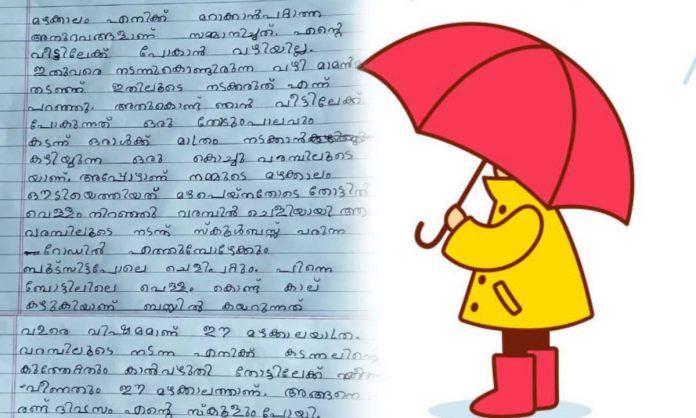 മഴക്കാലം എനിക്ക് മറക്കാൻപറ്റാത്ത
അനുഭവങ്ങളാണ് സമ്മാനിച്ചത്. എന്റെ
വീട്ടിലേക്ക് പോകാൻ വഴിയില്ല.
ഇതുവരെ നടന്നുകൊണ്ടിരുന്ന വഴി
തടഞ്ഞ് ഇതിലൂടെ നടക്കരുത് എന്ന്
പറഞ്ഞു. അതുകൊണ്ട് ഞാൻ വീട്ടിലേക്ക്
പോകുന്നത് ഒരു തോടും പാലവും
കടന്ന് ഒരാൾക്ക് മാത്രം നടക്കാൻ
കഴിയുന്ന ഒരു കൊച്ചു വരമ്പിലൂടെ
യാണ്. അപ്പോഴാണ് നമ്മുടെ മഴക്കാലം
ഓടിയെത്തിയത് മഴപെയ്നതോടെ തോട്ടിൽ
വെള്ളം നിറഞ്ഞു വരമ്പിൽ ചെളിയായി ആ
വരമ്പിലൂടെ നടന്ന് സ്കൂൾബസ്സ് വരുന്ന
റോഡിൽ എത്തുമ്പോഴേക്കും
ബൂട്ട്സിട്ടപോലെ ചെളിപറ്റും. പിന്നെ
ബോട്ടിലിലെ വെള്ളം കൊണ്ട് കാല്
കഴുകിയാണ് ബസ്സിൽ കയറുന്നത്
വളരെ വിഷമമാണ് ഈ മഴക്കാലയാത്ര.
വരമ്പിലൂടെ നടന്ന എനിക്ക് കടന്നലിന്റെ
കുത്തേറ്റതും കാൽവഴുതി തോട്ടിലേക്ക്
വീണതും ഈ മഴക്കാലത്താണ്. അങ്ങനെ
രണ്ട് ദിവസം എന്റെ സ്കൂളും പോയി.